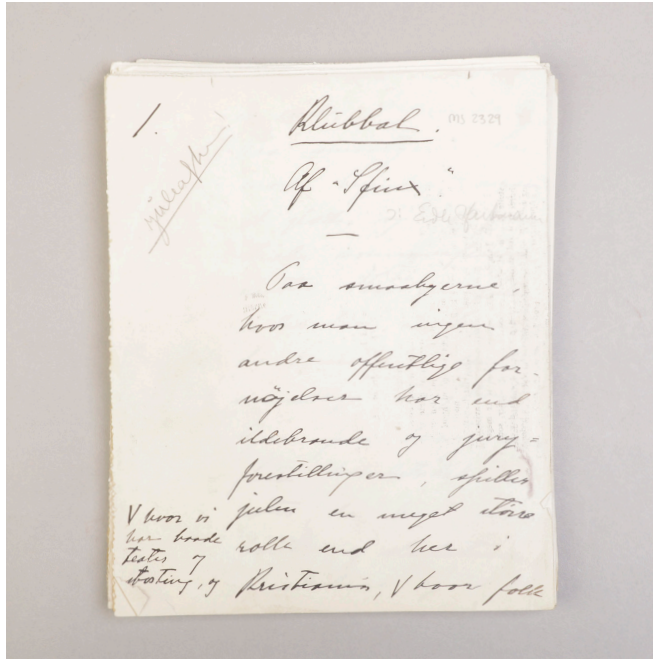 1.
Klubbal.
MS 2329
Af "Sfinx".
Paa smaabyerne,
hvor man ingen
andre offentlige for-
nöjelser har end
ildebrande og jury=
forestillinger, spiller
julen en meget större
rolle end her i
Kristiania, V hvor folk
V hvor vi
har baade
teater og
storting, og